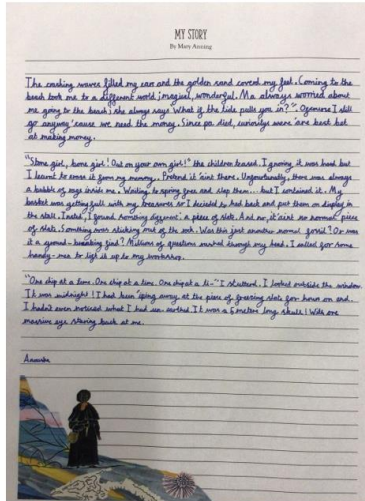 MY STORY
By Mary Anning
The crashing waves filled my ears and the golden sand coverd my feet. Coming to the
beach took me to a different world; magical, wonderful. Ma always worried about
me going to the beach; she always says "What if the tide pulls you in?". Ofcourse I still
go anyway 'cause we need the money. Since pa died, curiosity's were are best bet
at making money.
"Stone girl, bone girl! Out on your own girl!" the children teased. Ignoring it was hard but
I learnt to erase it from my memory. Pretend it 'aint there. Unfortunately, there was always
a bubble of rage inside me. Waiting to spring free and slap them... but I contained it. My
basket was getting full with my treasures so I decided to head back and put them on display in
the stall. Insted, I found something different: a piece of slate. And no, it 'aint no normal piece
of slate. Something was sticking out of the rock. Was this just another normal fossil? Or was
it a ground-breaking find? Millions of questions swirled though my head. I called for some
handy-men to lift it up to my workshop.
"One chip at a time. One chip at a time. One chip at a ti-" I stutterd. I looked outside the window.
It was midnight! I had been 'ping away at the piece of freezing slate for hours on end.
I hadn't even noticed what I had un-earthed. It was a 6 metere long skull! With one
massive eye staring back at me.